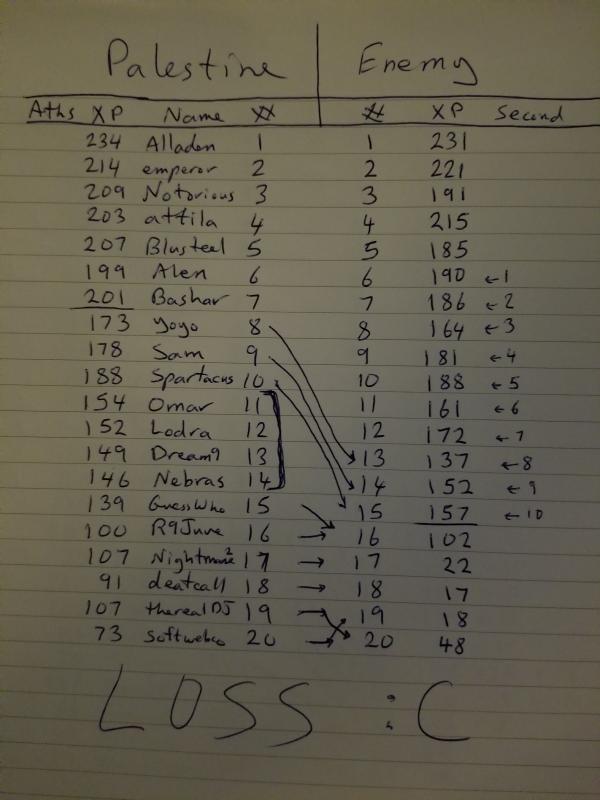 Palestine Enemy
Aths XP Name # # XP Second
234 Alladen 1 1 231
214 emperor 2 2 221
209 Notorious 3 3 191
203 attila 4 4 215
207 Blusteel 5 5 185
199 Alen 6 6 190 ←1
201 Bashar 7 7 186 ←2
173 yoyo 8 8 164 ←3
178 Sam 9 9 181 ←4
188 Spartacus 10 10 188 ←5
154 Omar 11 11 161 ←6
152 Lodra 12 12 172 ←7
149 Dream9 13 13 137 ←8
146 Nebras 14 14 152 ←9
139 GuessWho 15 15 157 ←10
100 R9June 16 → 16 102
107 17 → 17 22
91 deatcall 18 → 18 17
107 therealDJ 19 19 18
73 20 20 48
LOSS :C